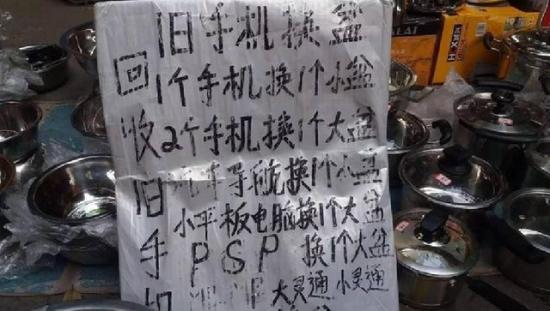 旧手机换盆
1个手机换1个小盆
2个手机换1个大盆
汽车导航换1个小盆
小平板电脑换1个大盆
PSP 换1个大盆
大灵通 小灵通
回收旧手机